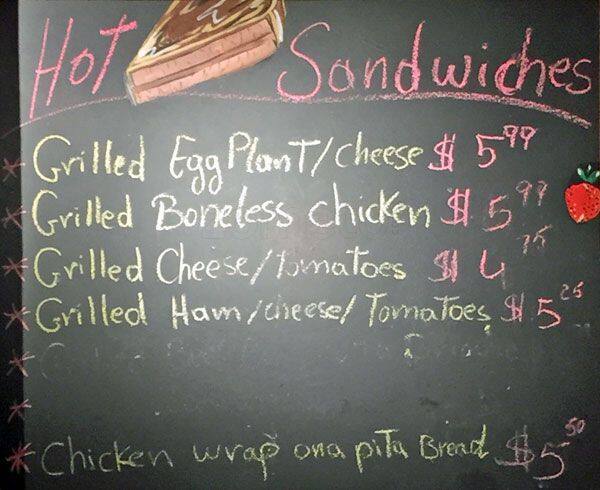 Hot Sandwiches
* Grilled EggPlanT/cheese $ 5 99
* Grilled Boneless chicken $ 5 99
* Grilled Cheese/Tomatoes $ 4 75
* Grilled Ham/cheese/Tomatoes $ 5 25
*
*
* Chicken wrap on a pita Bread $5 50